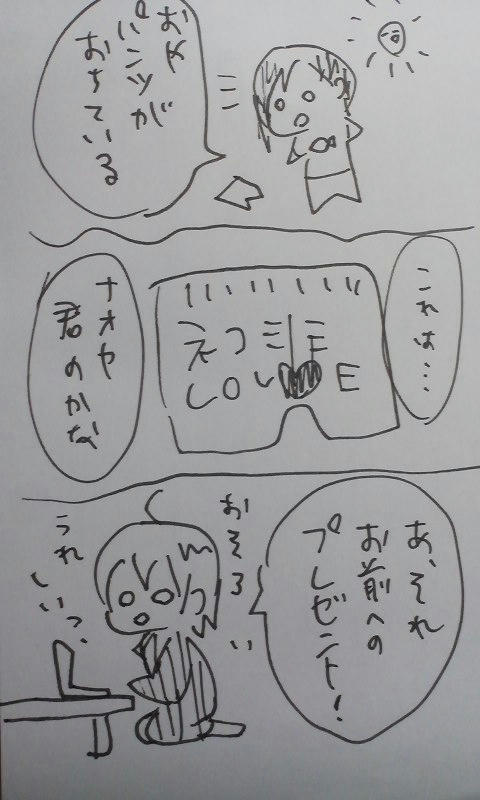 おや
パンツが
おちている
これは…
えつこ
LOVE
ナオヤ
君のかな
あ、それ
お前への
プレゼント!
おそろい
うれしいっ